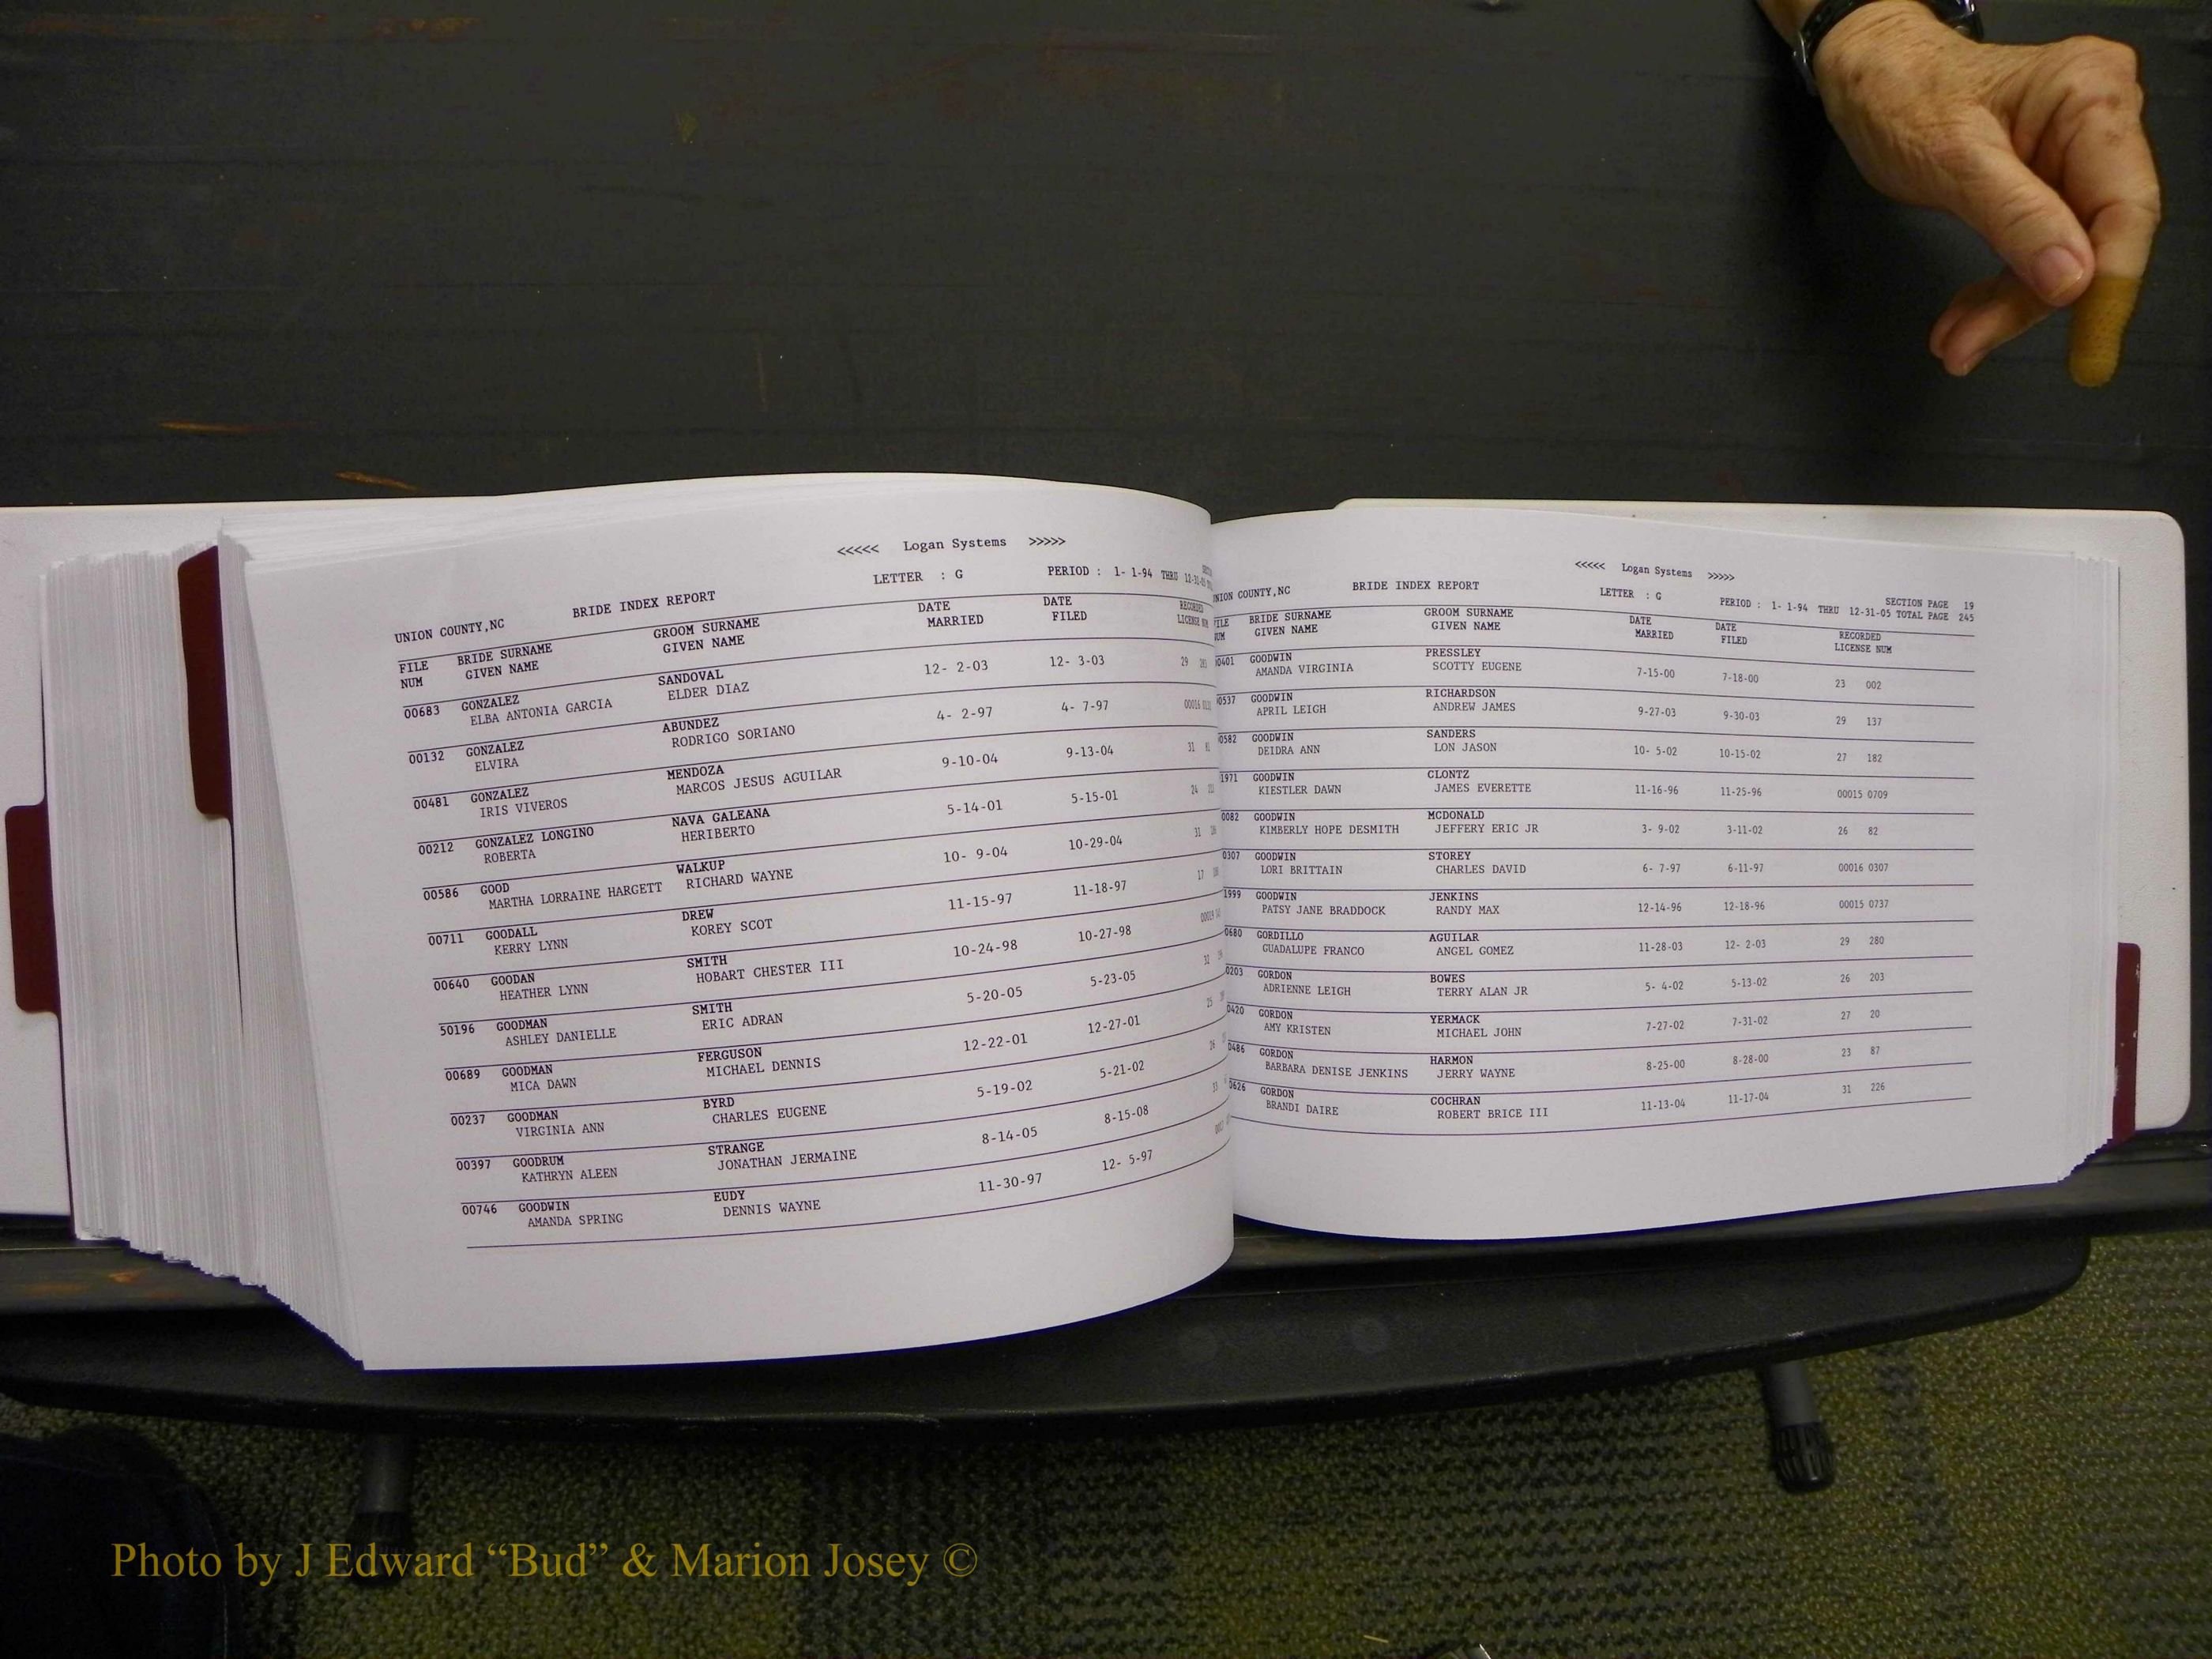 <<<<< Logan Systems >>>>>
UNION COUNTY,NC BRIDE INDEX REPORT LETTER : G PERIOD : 1- 1-94 THRU
FILE BRIDE SURNAME GROOM SURNAME DATE DATE RECORDED
NUM GIVEN NAME GIVEN NAME MARRIED FILED LICENSE
00683 GONZALEZ SANDOVAL 12- 2-03 12- 3-03 29
ELBA ANTONIA GARCIA ELDER DIAZ
00132 GONZALEZ ABUNDEZ 4- 2-97 4- 7-97 00016
ELVIRA RODRIGO SORIANO
00481 GONZALEZ MENDOZA 9-10-04 9-13-04 31
IRIS VIVEROS MARCOS JESUS AGUILAR
00212 GONZALEZ LONGINO NAVA GALEANA 5-14-01 5-15-01 24
ROBERTA HERIBERTO
00586 GOOD WALKUP 10- 9-04 10-29-04 31
MARTHA LORRAINE HARGETT RICHARD WAYNE
00711 GOODALL DREW 11-15-97 11-18-97 17
KERRY LYNN KOREY SCOT
00640 GOODAN SMITH 10-24-98 10-27-98
HEATHER LYNN HOBART CHESTER III
50196 GOODMAN SMITH 5-20-05 5-23-05 32
ASHLEY DANIELLE ERIC ADRAN
00689 GOODMAN FERGUSON 12-22-01 12-27-01 25
MICA DAWN MICHAEL DENNIS
00237 GOODMAN BYRD 5-19-02 5-21-02 26
VIRGINIA ANN CHARLES EUGENE
00397 GOODRUM STRANGE 8-14-05 8-15-08 33
KATHRYN ALEEN JONATHAN JERMAINE
00746 GOODWIN EUDY 11-30-97 12- 5-97
AMANDA SPRING DENNIS WAYNE
<<<<< Logan Systems >>>>>
UNION COUNTY,NC BRIDE INDEX REPORT LETTER : G SECTION PAGE 19
PERIOD : 1- 1-94 THRU 12-31-05 TOTAL PAGE 245
FILE BRIDE SURNAME GROOM SURNAME DATE DATE RECORDED
NUM GIVEN NAME GIVEN NAME MARRIED FILED LICENSE NUM
0401 GOODWIN PRESSLEY 7-15-00 7-18-00 23 002
AMANDA VIRGINIA SCOTTY EUGENE
0537 GOODWIN RICHARDSON 9-27-03 9-30-03 29 137
APRIL LEIGH ANDREW JAMES
0582 GOODWIN SANDERS 10- 5-02 10-15-02 27 182
DEIDRA ANN LON JASON
1971 GOODWIN CLONTZ 11-16-96 11-25-96 00015 0709
KIESTLER DAWN JAMES EVERETTE
0082 GOODWIN MCDONALD 3- 9-02 3-11-02 26 82
KIMBERLY HOPE DESMITH JEFFERY ERIC JR
0307 GOODWIN STOREY 6- 7-97 6-11-97 00016 0307
LORI BRITTAIN CHARLES DAVID
1999 GOODWIN JENKINS 12-14-96 12-18-96 00015 0737
PATSY JANE BRADDOCK RANDY MAX
0680 GORDILLO AGUILAR 11-28-03 12- 2-03 29 280
GUADALUPE FRANCO ANGEL GOMEZ
0203 GORDON BOWES 5- 4-02 5-13-02 26 203
ADRIENNE LEIGH TERRY ALAN JR
0420 GORDON YERMACK 7-27-02 7-31-02 27 20
AMY KRISTEN MICHAEL JOHN
0486 GORDON HARMON 8-25-00 8-28-00 23 87
BARBARA DENISE JENKINS JERRY WAYNE
0626 GORDON COCHRAN 11-13-04 11-17-04 31 226
BRANDI DAIRE ROBERT BRICE III
Photo by J Edward “Bud” & Marion Josey ©